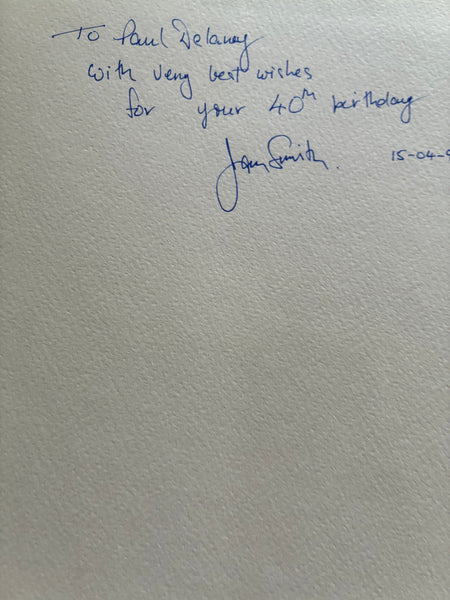 To Paul Delaney
with very best wishes
for your 40th birthday
Smith. 15-04-9